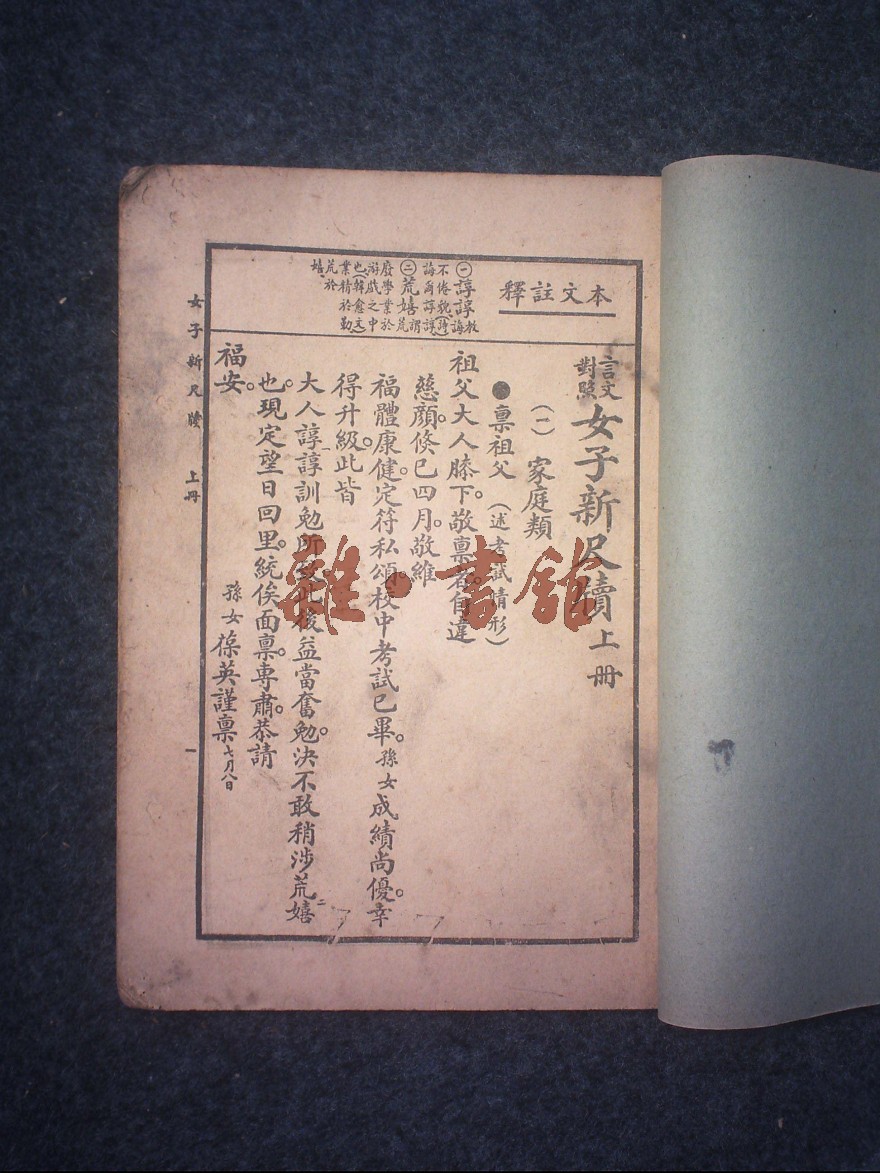 本文註釋
㊀諄諄教誨
不倦貌(詩)
誨爾諄諄
㊁荒嬉謂荒
廢學業於
游戲之中
也(韓愈文)
業精於勤
荒於
嬉
言文對照女子新尺牘上冊
(一) 家庭類
●稟祖父(述考試情形)
祖父大人膝下。敬稟者。自違
慈顏。倏已四月。敬維
福體康健。定符私頌。校中考試已畢。孫女成績尚優。幸
得升級。此皆
大人諄諄訓勉所致。此後益當奮勉。決不敢稍涉荒嬉
也。現定望日回里。統俟面稟。專肅。恭請
福安。
孫女葆英謹稟七月八日
女子新尺牘 上冊
一
雜·書館